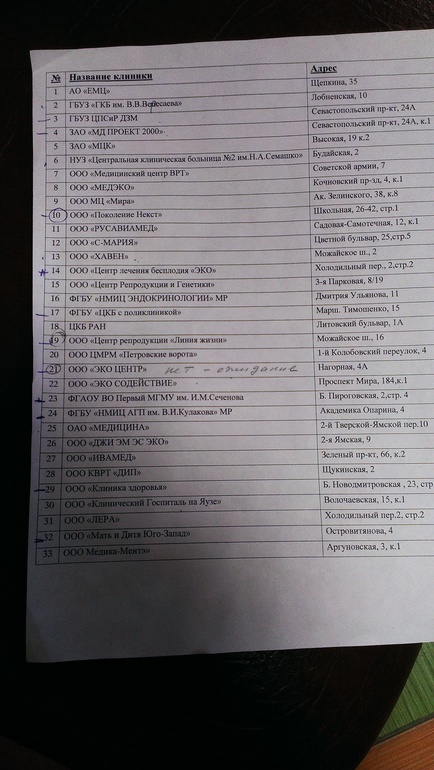 № Название клиники Адрес
1 АО «ЕМЦ» Щепкина, 35
2 ГБУЗ «ГКБ им. В.В.Вересаева» Лобненская, 10
3 ГБУЗ ЦПСиР ДЗМ Севастопольский пр-кт, 24А
4 ЗАО «МД ПРОЕКТ 2000» Севастопольский пр-кт, 24А, к.1
5 ЗАО «МЦК» Высокая, 19 к.2
6 НУЗ «Центральная клиническая больница №2 им.Н.А.Семашко» Будайская, 2
7 ООО «Медицинский центр ВРТ» Советской армии, 7
8 ООО «МЕДЭКО» Кочновский пр-зд, 4, к.1
9 ООО МЦ «Мира» Ак. Зелинского, 38, к.8
10 ООО «Поколение Некст» Школьная, 26-42, стр.1
11 ООО «РУСАВИАМЕД» Садовая-Самотечная, 12, к.1
12 ООО «С-МАРИЯ» Цветной бульвар, 25,стр.5
13 ООО «ХАВЕН» Можайское ш., 2
14 ООО «Центр лечения бесплодия «ЭКО» Холодильный пер., 2,стр.2
15 ООО «Центр Репродукции и Генетики» 3-я Парковая, 8/19
16 ФГБУ «НМИЦ ЭНДОКРИНОЛОГИИ» МР Дмитрия Ульянова, 11
17 ФГБУ «ЦКБ с поликлиникой» Марш. Тимошенко, 15
18 ЦКБ РАН Литовский бульвар, 1А
19 ООО «Центр репродукции «Линия жизни» Можайское ш., 16
20 ООО ЦМРМ «Петровские ворота» 1-й Колобовский переулок, 4
21 ООО «ЭКО ЦЕНТР» нет - ожидание Нагорная, 4А
22 ООО «ЭКО СОДЕЙСТВИЕ» Проспект Мира, 184,к.1
23 ФГАОУ ВО Первый МГМУ им. И.М.Сеченова Б. Пироговская, 2,стр. 4
24 ФГБУ «НМИЦ АГП им. В.И.Кулакова» МР Академика Опарина, 4
25 ОАО «МЕДИЦИНА» 2-й Тверской-Ямской пер.10
26 ООО «ДЖИ ЭМ ЭС ЭКО» 2-я Ямская, 9
27 ООО «ИВАМЕД» Зеленый пр-кт, 66, к.2
28 ООО КВРТ «ДИП» Щукинская, 2
29 ООО «Клиника здоровья» Б. Новодмитровская , 23, стр
30 ООО «Клинический Госпиталь на Яузе» Волочаевская, 15, к.1
31 ООО «ЛЕРА» Холодильный пер.2, стр.2
32 ООО «Мать и Дитя Юго-Запад» Островитянова, 4
33 ООО Медика-Ментэ» Аргуновская, 3, к.1